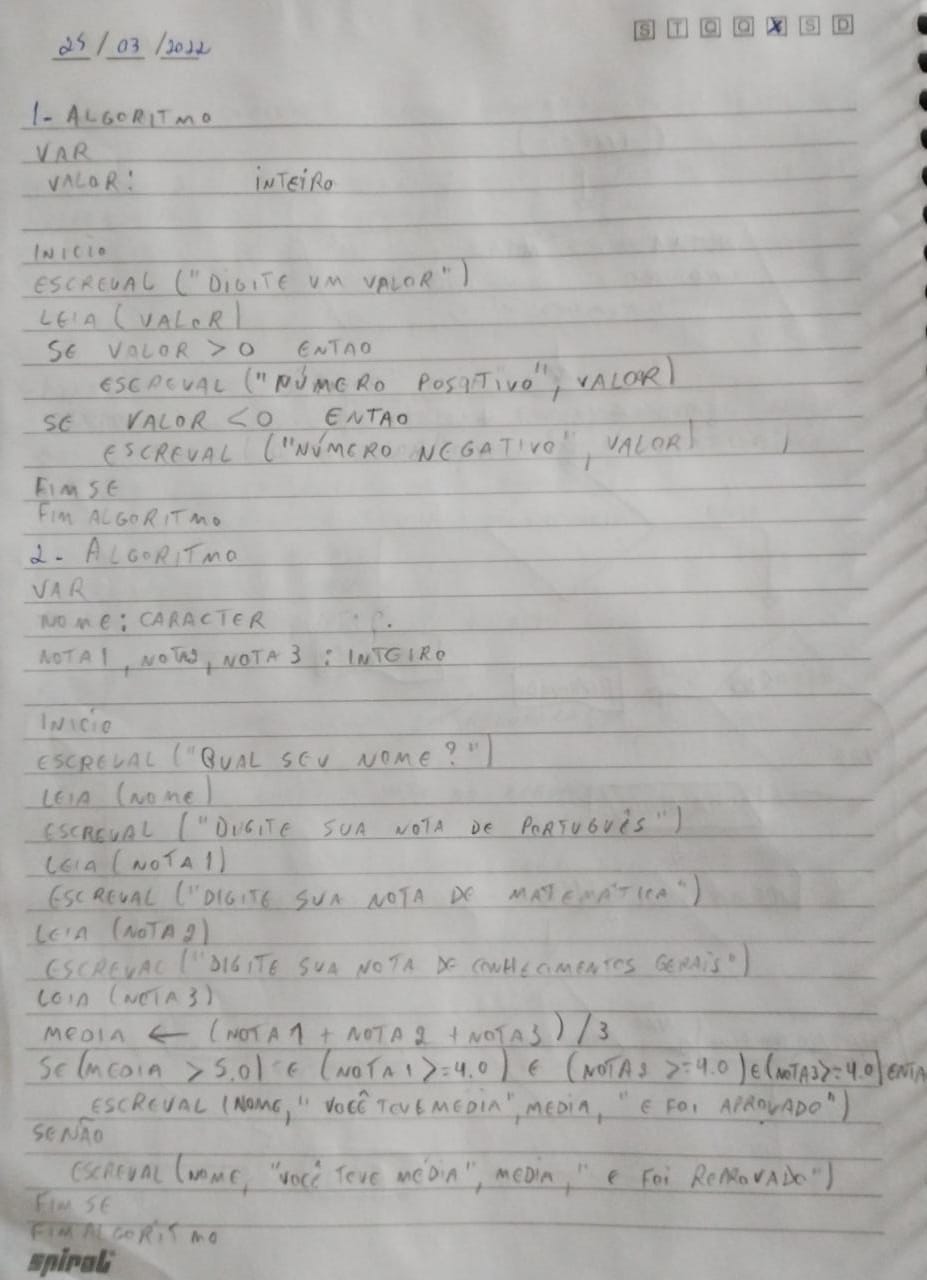 25/03/2022
S T Q Q X S D
1- ALGORITMO
VAR
VALOR: INTEIRO
INICIO
ESCREVAL ("DIGITE UM VALOR")
LEIA (VALOR)
SE VALOR > 0 ENTAO
ESCREVAL ("NÚMERO POSITIVO", VALOR)
SE VALOR < 0 ENTAO
ESCREVAL ("NÚMERO NEGATIVO", VALOR)
FIM SE
FIM ALGORITMO
2- ALGORITMO
VAR
NOME: CARACTER
NOTA1, NOTA2, NOTA 3 : INTEIRO
INICIO
ESCREVAL ("QUAL SEU NOME?")
LEIA (NOME)
ESCREVAL ("DIGITE SUA NOTA DE PORTUGUÊS")
LEIA (NOTA 1)
ESCREVAL ("DIGITE SUA NOTA DE MATEMÁTICA")
LEIA (NOTA 2)
ESCREVAL ("DIGITE SUA NOTA DE CONHECIMENTOS GERAIS")
LEIA (NOTA 3)
MEDIA ← (NOTA 1 + NOTA 2 + NOTA 3) / 3
SE (MEDIA > 5,0) E (NOTA 1 >= 4.0) E (NOTA 2 >= 4.0) E (NOTA3 >= 4.0) ENTA
ESCREVAL (NOME, "VOCÊ TEVE MEDIA", MEDIA, "E FOI APROVADO")
SENÃO
ESCREVAL (NOME, "VOCÊ TEVE MÉDIA", MEDIA, "E FOI REPROVADO")
FIM SE
FIM ALGORITMO
spiral